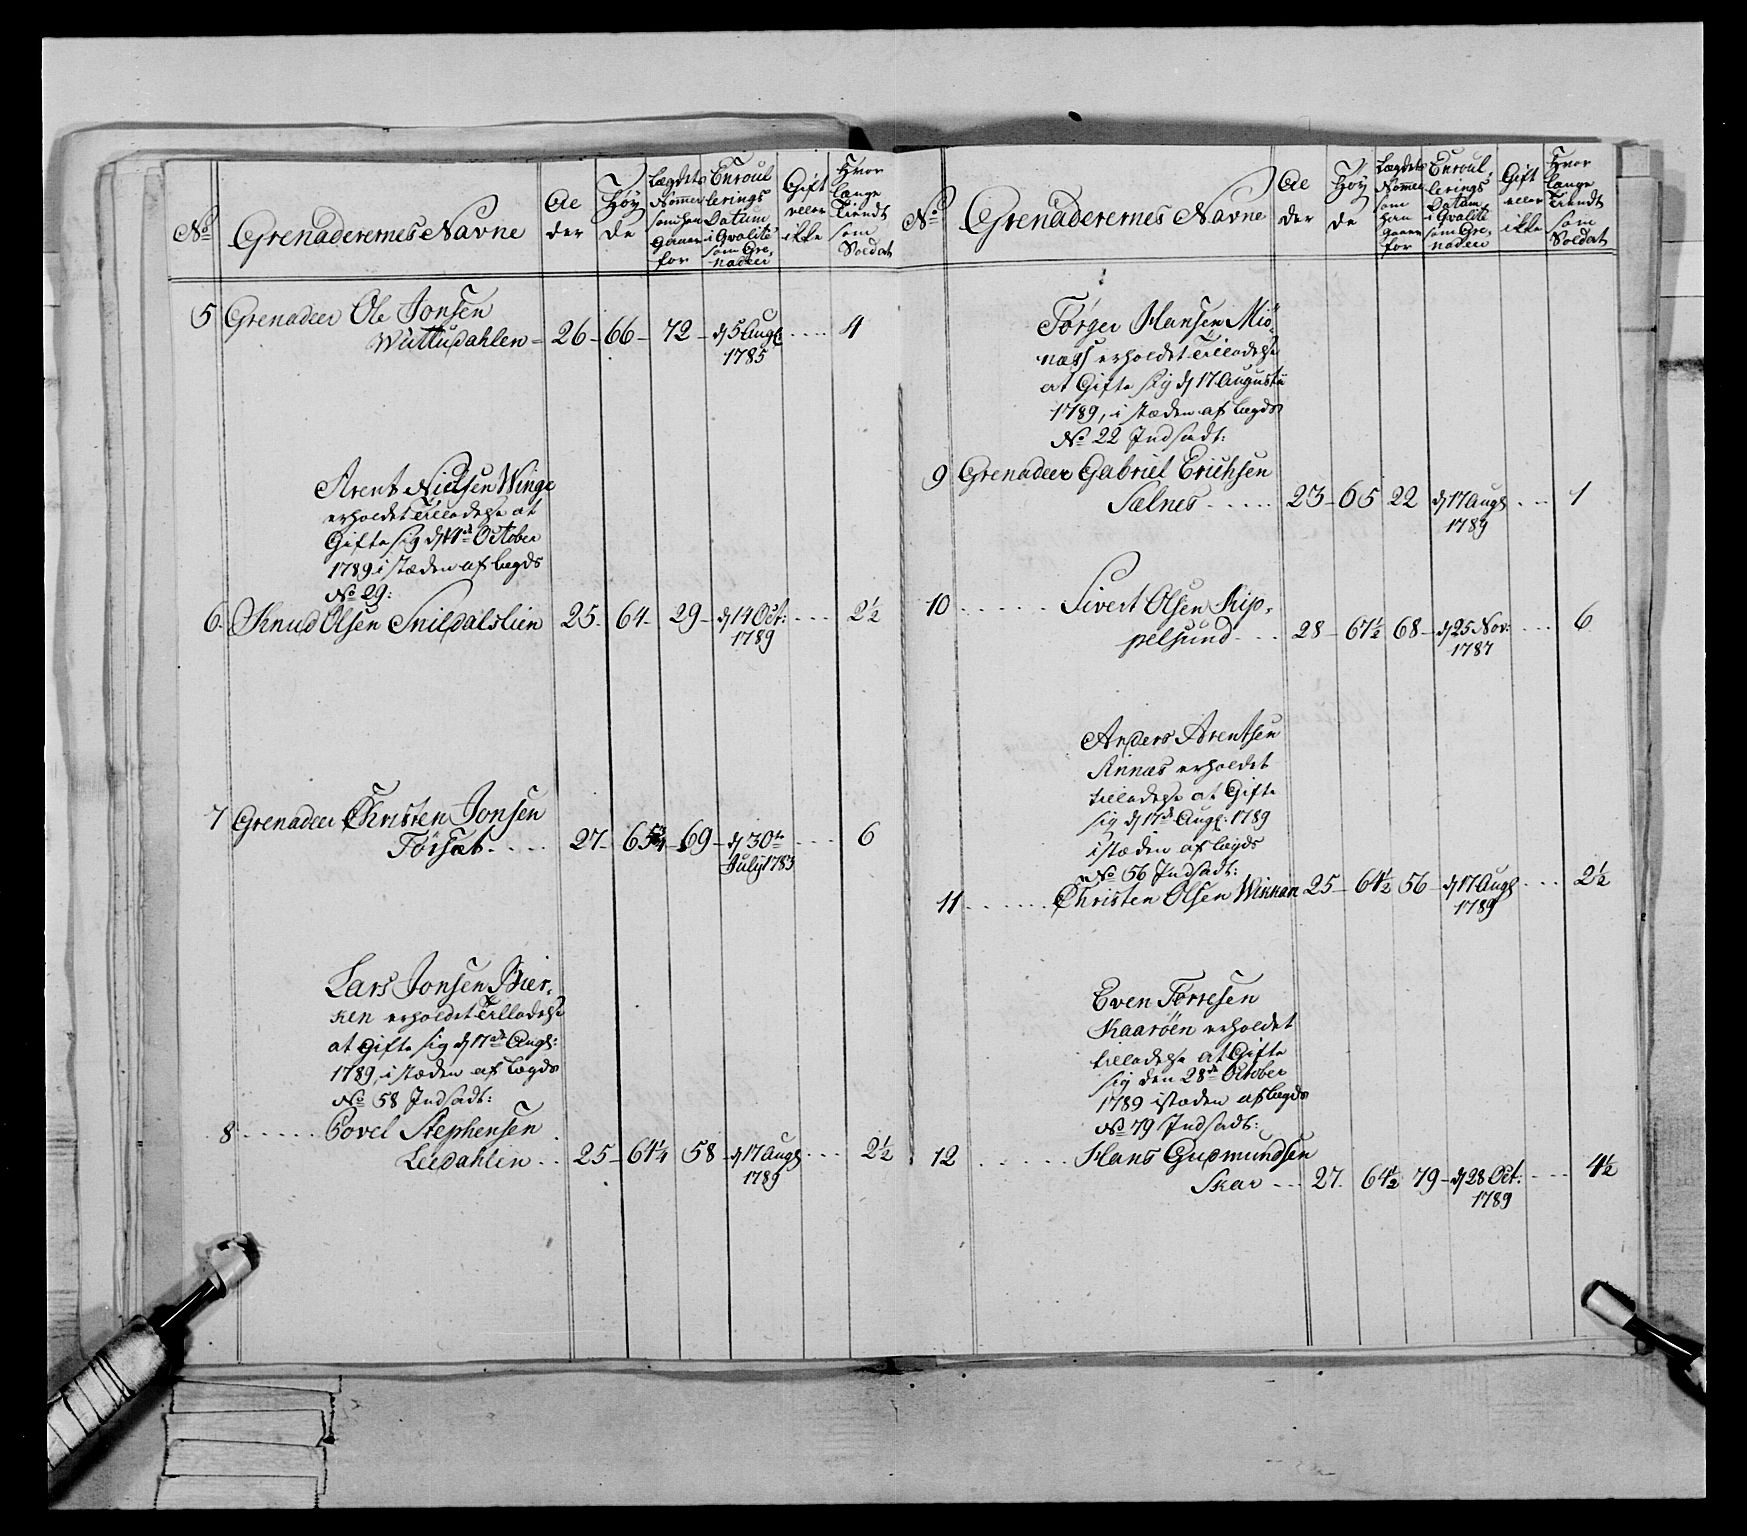 No
Grenaderernes Navne
Al
der
Höy
de
Lægdets
Nommer
som han
gaaer
for
Enroul
lerings
Datum
i Qvalité
som Gre-
nadeer
Gift
eller
ikke
Hvor
længe
tiendt
som
Soldat
5 Grenadeer Ole Jonsen
Wuttudahlen - 26 - 66 - 72 - d 5 Augl .... 4
1785
Arent Nielsen Winge
erholdet Tilladelse at
Gifte sig d 14de October
1789 i stæden af Lægds
No 29:
6. Knud Olsen Snildalslien 25 - 64 - 29 - d 14 Oct: ... 2½
1789
7 Grenadeer Christen Jonsen
Törsæt .... 27 - 65¾ - 69 - d 30te .... 6
July 1783
Lars Jonsen Bier-
ken erholdet Tilladelse
at Gifte sig d 17de Augl:
1789, i stæden af Lægds
No 58 Indsadt:
8 ..... Povel Stephensen
Leedahlen .. 25 - 64¼ 58 - d 17 Augl .... 2½
1789
No
Grenaderernes Navne
Al
der
Höy
de
Lægdets
Nommer
som
han
gaaer
for
Enroul-
lerings
Datum
i Qvalité
som Gre-
nadeer
Gift
eller
ikke
Hvor
længe
tiendt
som
Soldat
Törger Hansen Miö-
næss erholdet Tilladelse
at Gifte sig d 17 Augusti
1789, i stæden af Lægds
No 22 Indsadt:
9 Grenadeer Gabriel Erichsen
Sælnes ..... 23 - 65 22 d 17 Augl ... 1
1789
10 ...... Sivert Olsen Kip-
pelsund ... 28 - 67½ 68 - d 25 Nov: .... 6
1787
Anders Arentsen
Rinnæs erholdet
tilladelse at Gifte
sig d 17de Augl: 1789
i stæden af Lægds
No 56 Indsadt:
11 ...... Christen Olsen Winnan 25 - 64½ 56 - d 17 Augl .... 2½
1789
Even Torresen
Kaaröen erholdet
tilladelse at Gifte
sig den 28de October
1789 i stæden af Lægds
No 79 Indsadt:
12 ...... Hans Gudmundsen
Skar ... 27. 64½ 79 - d 28 Oct: .... 4½
1789